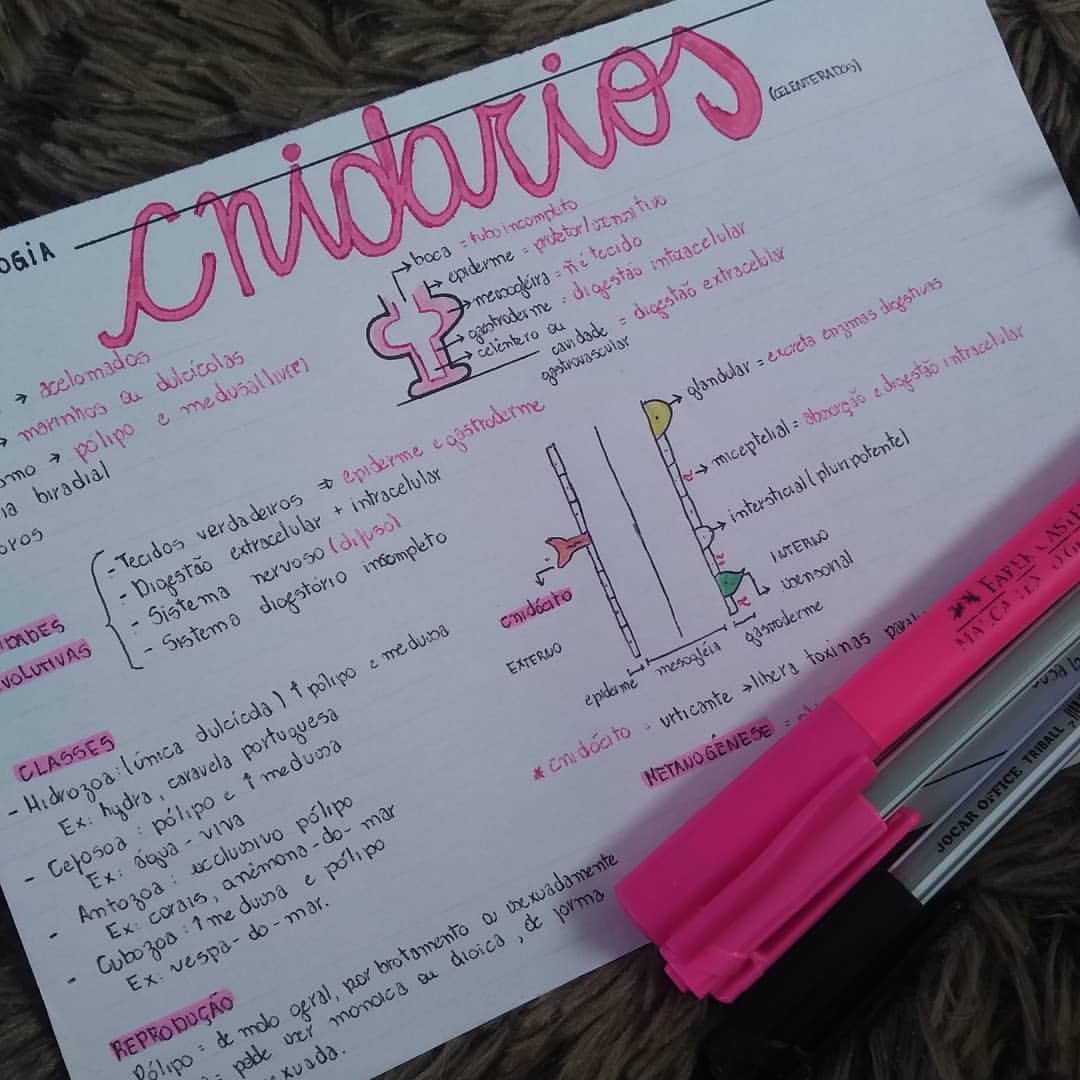 cnidarios
(CELENTERADOS)
OGIA
boca = tubo incompleto
epiderme = protetor/sensitivo
mesogléia = ñ é tecido
gastroderme = digestão intracelular
celêntero ou cavidade gastrovascular = digestão extracelular
→ acelomados
→ marinhos ou dulcícolas
smo → pólipo e medusa(livre)
ia biradial
oros
IDADES
VOLUTIVAS
- Tecidos verdadeiros ⇒ epiderme e gastroderme
- Digestão extracelular + intracelular
- Sistema nervoso (difuso)
- Sistema digestório incompleto
glandular = excreta enzimas digestivas
mioeptelial = absorção e digestão intracelular
intersticial (pluripotente)
INTERNO
sensorial
cnidócito
EXTERNO
epiderme mesogléia gastroderme
* cnidócito = urticante → libera toxinas
METANOGÊNESE =
CLASSES
- Hidrozoa: (única dulcícola) ↑ pólipo e medusa
Ex: hydra, caravela portuguesa
- Cifosoa: pólipo e ↑ medusa
Ex: água-viva
- Antozoa: exclusivo pólipo
Ex: corais, anêmona-do-mar
- Cubozoa: ↑ medusa e pólipo
Ex: vespa-do-mar.
REPRODUÇÃO
Pólipo = de modo geral, por brotamento assexuadamente
pode ser monoica ou dioica, de forma
exuada.
FABER CASTE
JOCAR OFFICE TRIBALL